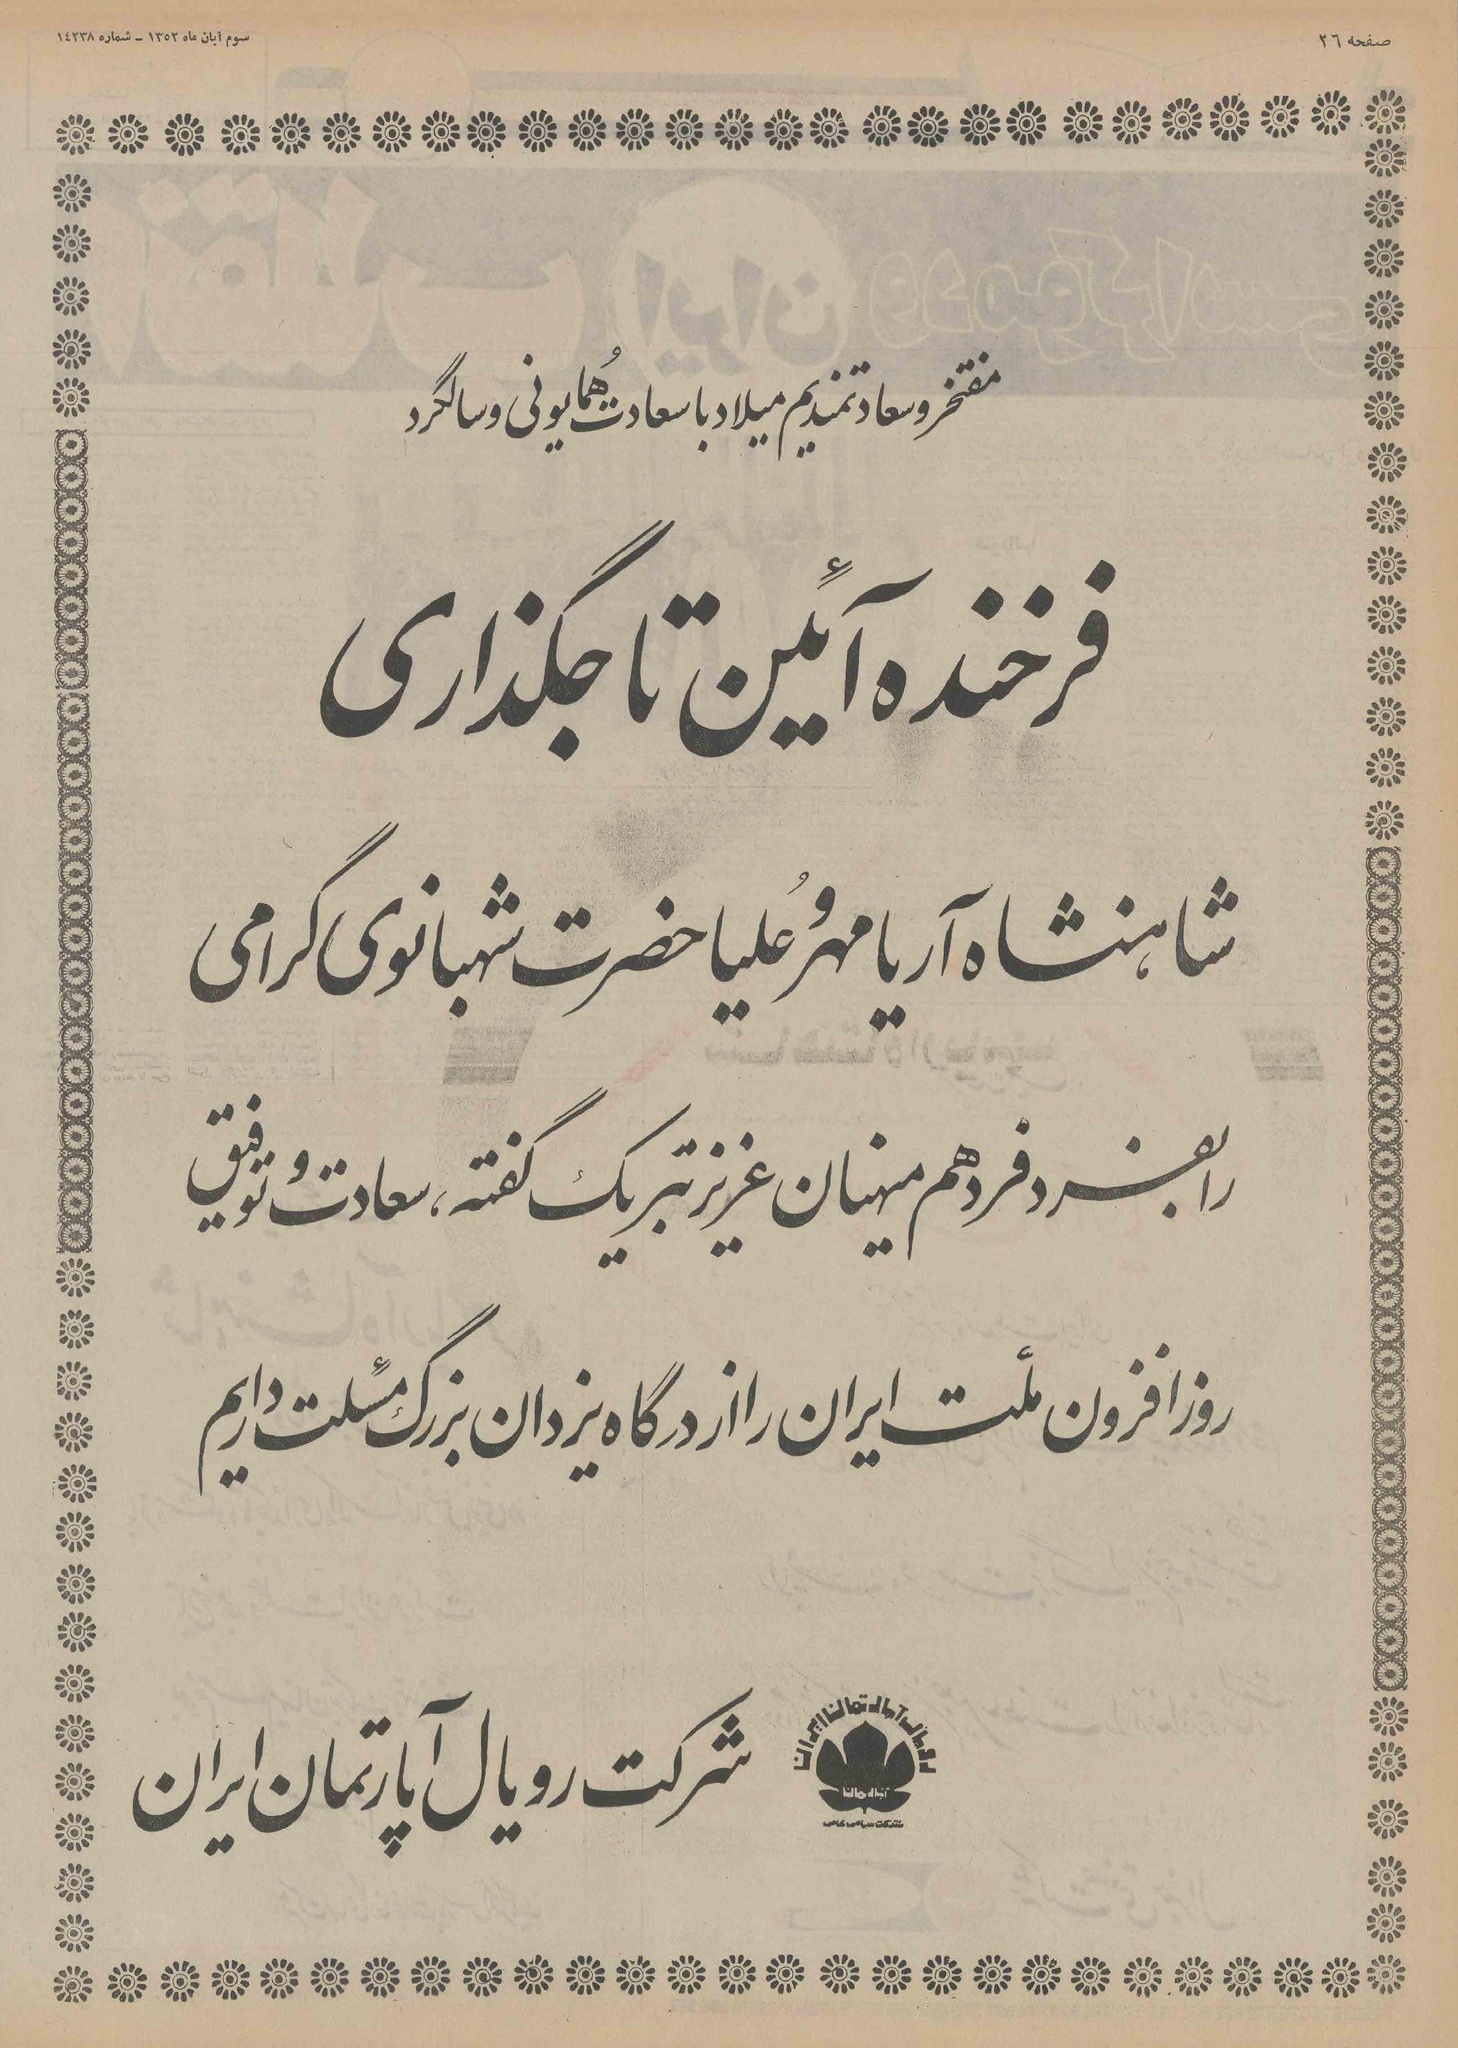 صفحه ۲۶
سوم آبان ماه ۱۳۵۳ - شماره ۱۴۲۳۸
مفتخر و سعادتمندیم میلاد با سعادت هُمایونی و سالگرد
فرخنده آئین تاجگذاری
شاهنشاه آریامهر و عُلیاحضرت شهبانوی گرامی
را بفرد فرد هم میهنان عزیز تبریک گفته، سعادت و توفیق
روزافزون ملّت ایران را از درگاه یزدان بزرگ مسئلت داریم
رویال آپارتمان ایران
شرکت رویال آپارتمان ایران